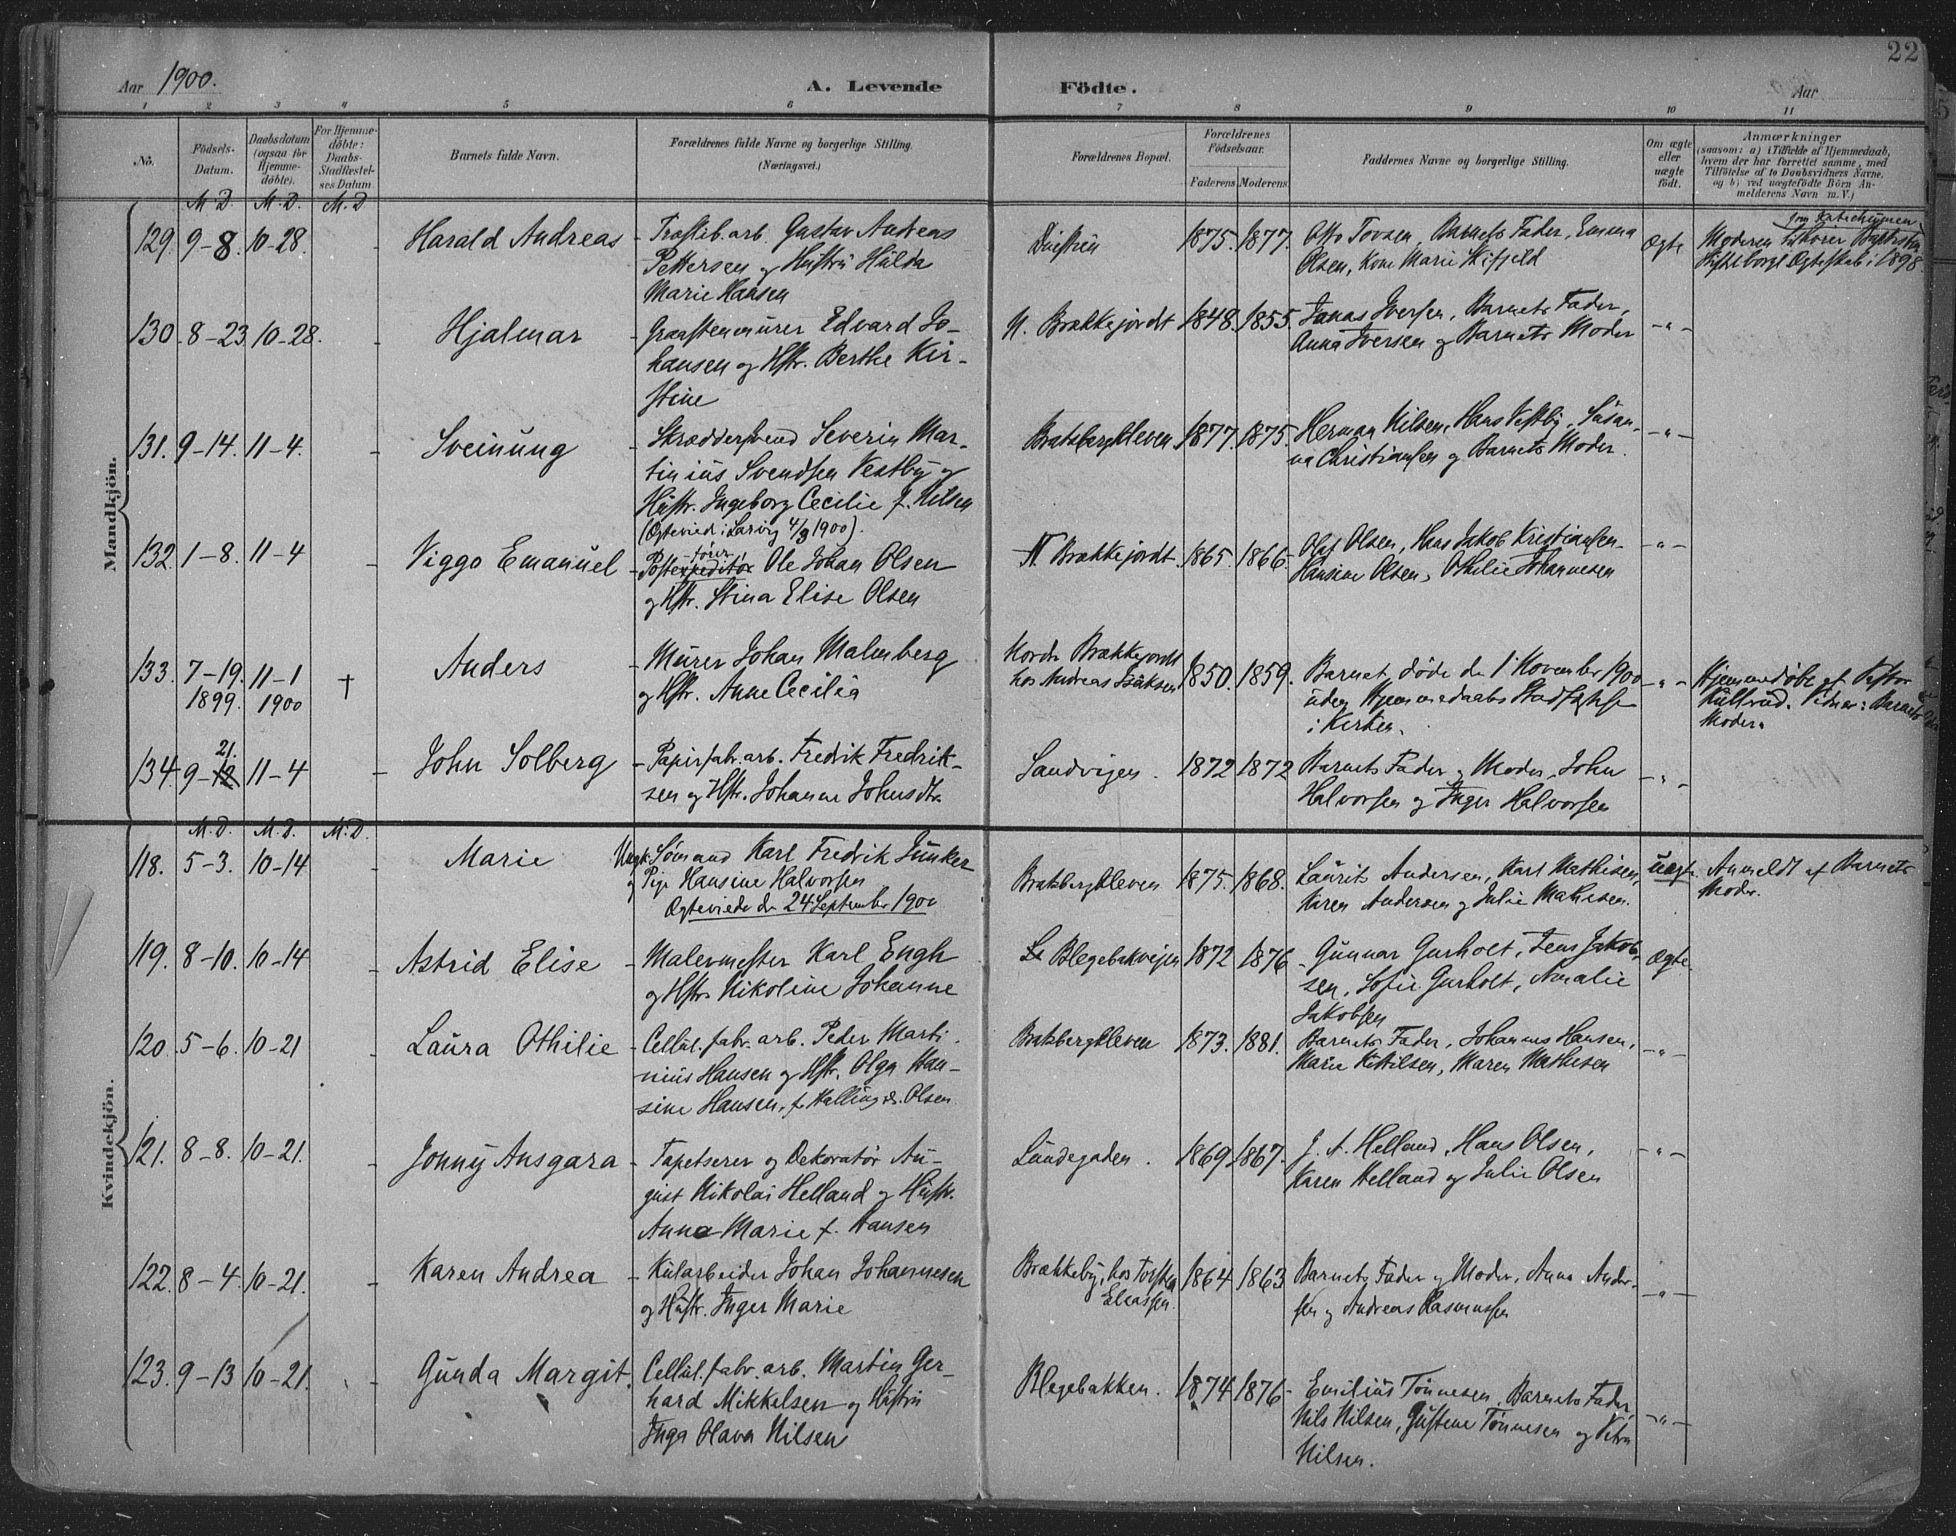 22
Aar 1900.
A. Levende
Födte.
Aar
1 2 3 4 5 6 7 8 9 10 11
No.
Födsels-
Datum.
Daabsdatum
(ogsaa for
Hjemme-
döbte).
For Hjemme-
döbte:
Daabs-
Stadfæstel-
ses Datum.
Barnets fulde Navn.
Forældrenes fulde Navne og borgerlige Stilling.
(Næringsvei.)
Forældrenes Bopæl.
Forældrenes
Födselsaar.
Faderens Moderens
Faddernes Navne og borgerlige Stilling.
Om ægte
eller
uægte
födt.
Anmærkninger
(saasom: a) i Tilfælde af Hjemmedaab,
hvem der har forrettet samme, med
Tilföielse af to Daabsvidners Navne,
og b) ved uægtefödte Börn An-
melderens Navn m. V.)
M. D. M. D. M. D
Mandkjön.
129. 9-8. 10-28. - Harald Andreas - Gustav Andreas
Pettersen og Hustru Hulda
Marie Hansen
1875. 1877. Otto Barnets Fader, Emma
Olsen, Marie
Ægte
Moderen
Ægteskab i 1898.
130. 8-23. 10-28. - Hjalmar - Graastenmurer Edvard Jo-
hansen og Hstr. Berthe Kir-
stine
N. Brækkejordt 1848. 1855. Jonas Iversen, Barnets Fader,
Anna Iversen og Barnets Moder
-"-
131. 9-14. 11-4. - Sveinung - Skræddersvend Severin Mar-
tinius Svendsen Vestby og
Hustr. Ingeborg Cecilie f. Nilsen
(Ægteviede i Larvig 4/8 1900).
Bratsbergkleven 1877. 1875. Herman Nilsen, Hans Vestby, Susan-
na Christiansen og Barnets Moder.
-"-
132. 1-8. 11-4 - Viggo Emanuel - Postexpeditör Ole Johan Olsen
og Hstr. Stina Elise Olsen
N Brækkejordt. 1865. 1866. Olaf Olsen, Hans Jakob Kristiansen
Hansine Olsen, Othilie Johannesen
-"-
133. 7-19. 11-1 † Anders - Murer Johan Malmberg
1899. 1900 og Hstr. Anne Cecilia
Nordre Brækkejordt
hos Andreas Isaksen
1850. 1859. Barnet døde den 1 November 1900
uden Hjemmedaabs Stadfæstelse
i Kirken.
-"-
Hjemmedøbt af Pastor
Kullerud. Vidner: Barnets
Moder
134. 9-18 21. 11-4 - John Solberg - Papirfabr. arb. Fredrik Fredrik-
sen og Hstr. Johanne Johnsdtr.
Sandvigen. 1872 1872 Barnets Fader og Moder, John
Halvorsen og Inger Halvorsen
-"-
M. D. M. D. M. D.
Kvindekjön.
118. 5-3. 10-14 - Marie Ungk. Sømand Karl Fredrik Junker
og Pige Hansine Halvorsen
Ægteviede den 24 September 1900
Bratsbergkleven 1875. 1868. Laurits Andersen, Karl Mathisen,
Karen Andersen og Julie Mathisen.
uægte
Anmeldt af Barnets
Moder.
119. 8-10. 10-14 - Astrid Elise - Malermester Karl Engh
og Hstr. Nikoline Johanne
Blegebakvejen 1872 1876 - Gunnar Gurholt, Jens Jakob-
sen, Sofie Gurholt, Amalie
Jakobsen
Ægte
120. 5-6. 10-21 - Laura Othilie - Cellul. fabr. arb. Peder Marti-
nius Hansen og Hstr. Olga Han-
sine Hansen, f. Olsen
Bratsbergkleven 1873. 1881. Barnets Fader, Johannes Hansen,
Marie Kittilsen, Maren Mathisen
-"-
121. 8-8. 10-21. - Jonny Ansgara - Tapetserer og Dekoratør Au-
gust Nikolai Helland og Hustr.
Anna Marie f. Hansen
Lundegaden. 1869. 1867. J. A. Helland, Hans Olsen,
Karen Helland og Julie Olsen
-"-
122. 8-4. 10-21. - Karen Andrea - Kularbeider Johan Johannesen
og Hustr. Inger Marie
Brækkeby, hos Torsten
Eliassen.
1864 1863 Barnets Fader og Moder, Anna Ander-
sen og Andreas Rasmussen
-"-
123. 9-13 10-21. - Gunda Margit. Cellul. fabr. arb. Martin Ger-
hard Mikkelsen og Hustru
Inga Olava Nilsen
Blegebakken. 1874 1876 - Emilius Tønnesen, Barnets Fader,
Nils Nilsen, Gustine Tønnesen og Petra
Nilsen.
-"-